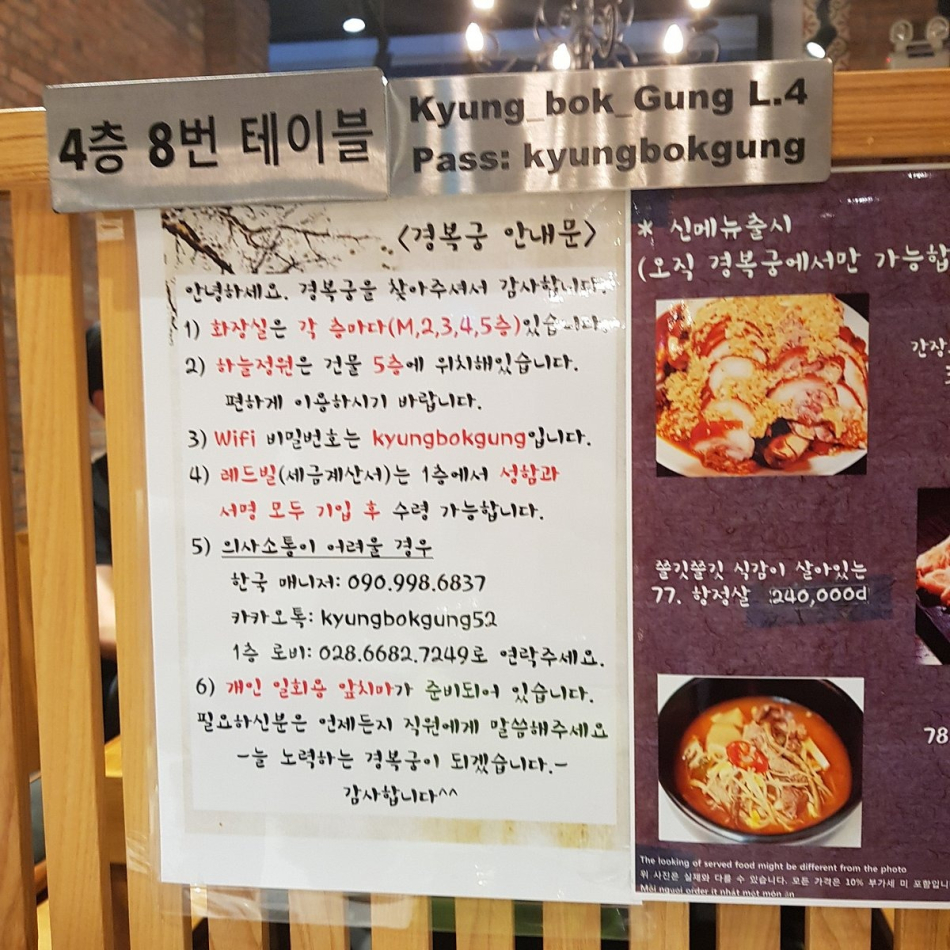 4층 8번 테이블
Kyung_bok_Gung L.4
Pass: kyungbokgung
<경복궁 안내문>
안녕하세요. 경복궁을 찾아주셔서 감사합니다.
1) 화장실은 각 층마다(M,2,3,4,5층)있습니다.
2) 하늘정원은 건물 5층에 위치해있습니다.
편하게 이용하시기 바랍니다.
3) Wifi 비밀번호는 kyungbokgung입니다.
4) 레드빌(세금계산서)는 1층에서 성함과
서명 모두 기입 후 수령 가능합니다.
5) 의사소통이 어려울 경우
한국 매니저: 090.998.6837
카카오톡: kyungbokgung52
1층 로비: 028.6682.7249로 연락주세요.
6) 개인 일회용 앞치마가 준비되어 있습니다.
필요하신분은 언제든지 직원에게 말씀해주세요
-늘 노력하는 경복궁이 되겠습니다.-
감사합니다^^
* 신메뉴출시
(오직 경복궁에서만 가능합
간장
쫄깃쫄깃 식감이 살아있는
77. 항정살 240,000đ
78
The looking of served food might be different from the photo
위 사진은 실제와 다를 수 있습니다. 모든 가격은 10% 부가세 미 포함입니
Mỗi người order ít nhất một món ăn